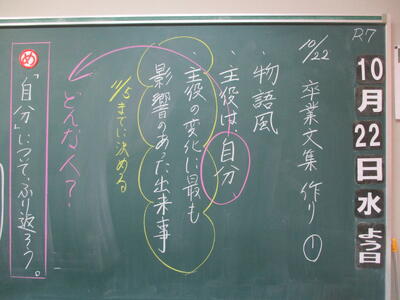 R7
10月22日水よう日
10/22 卒業文集作り①
・物語風
・主役は、自分
・主役の変化に最も
影響のあった出来事
11/5までに決める
どんな人?
め 「自分」について、ふり返ろう。